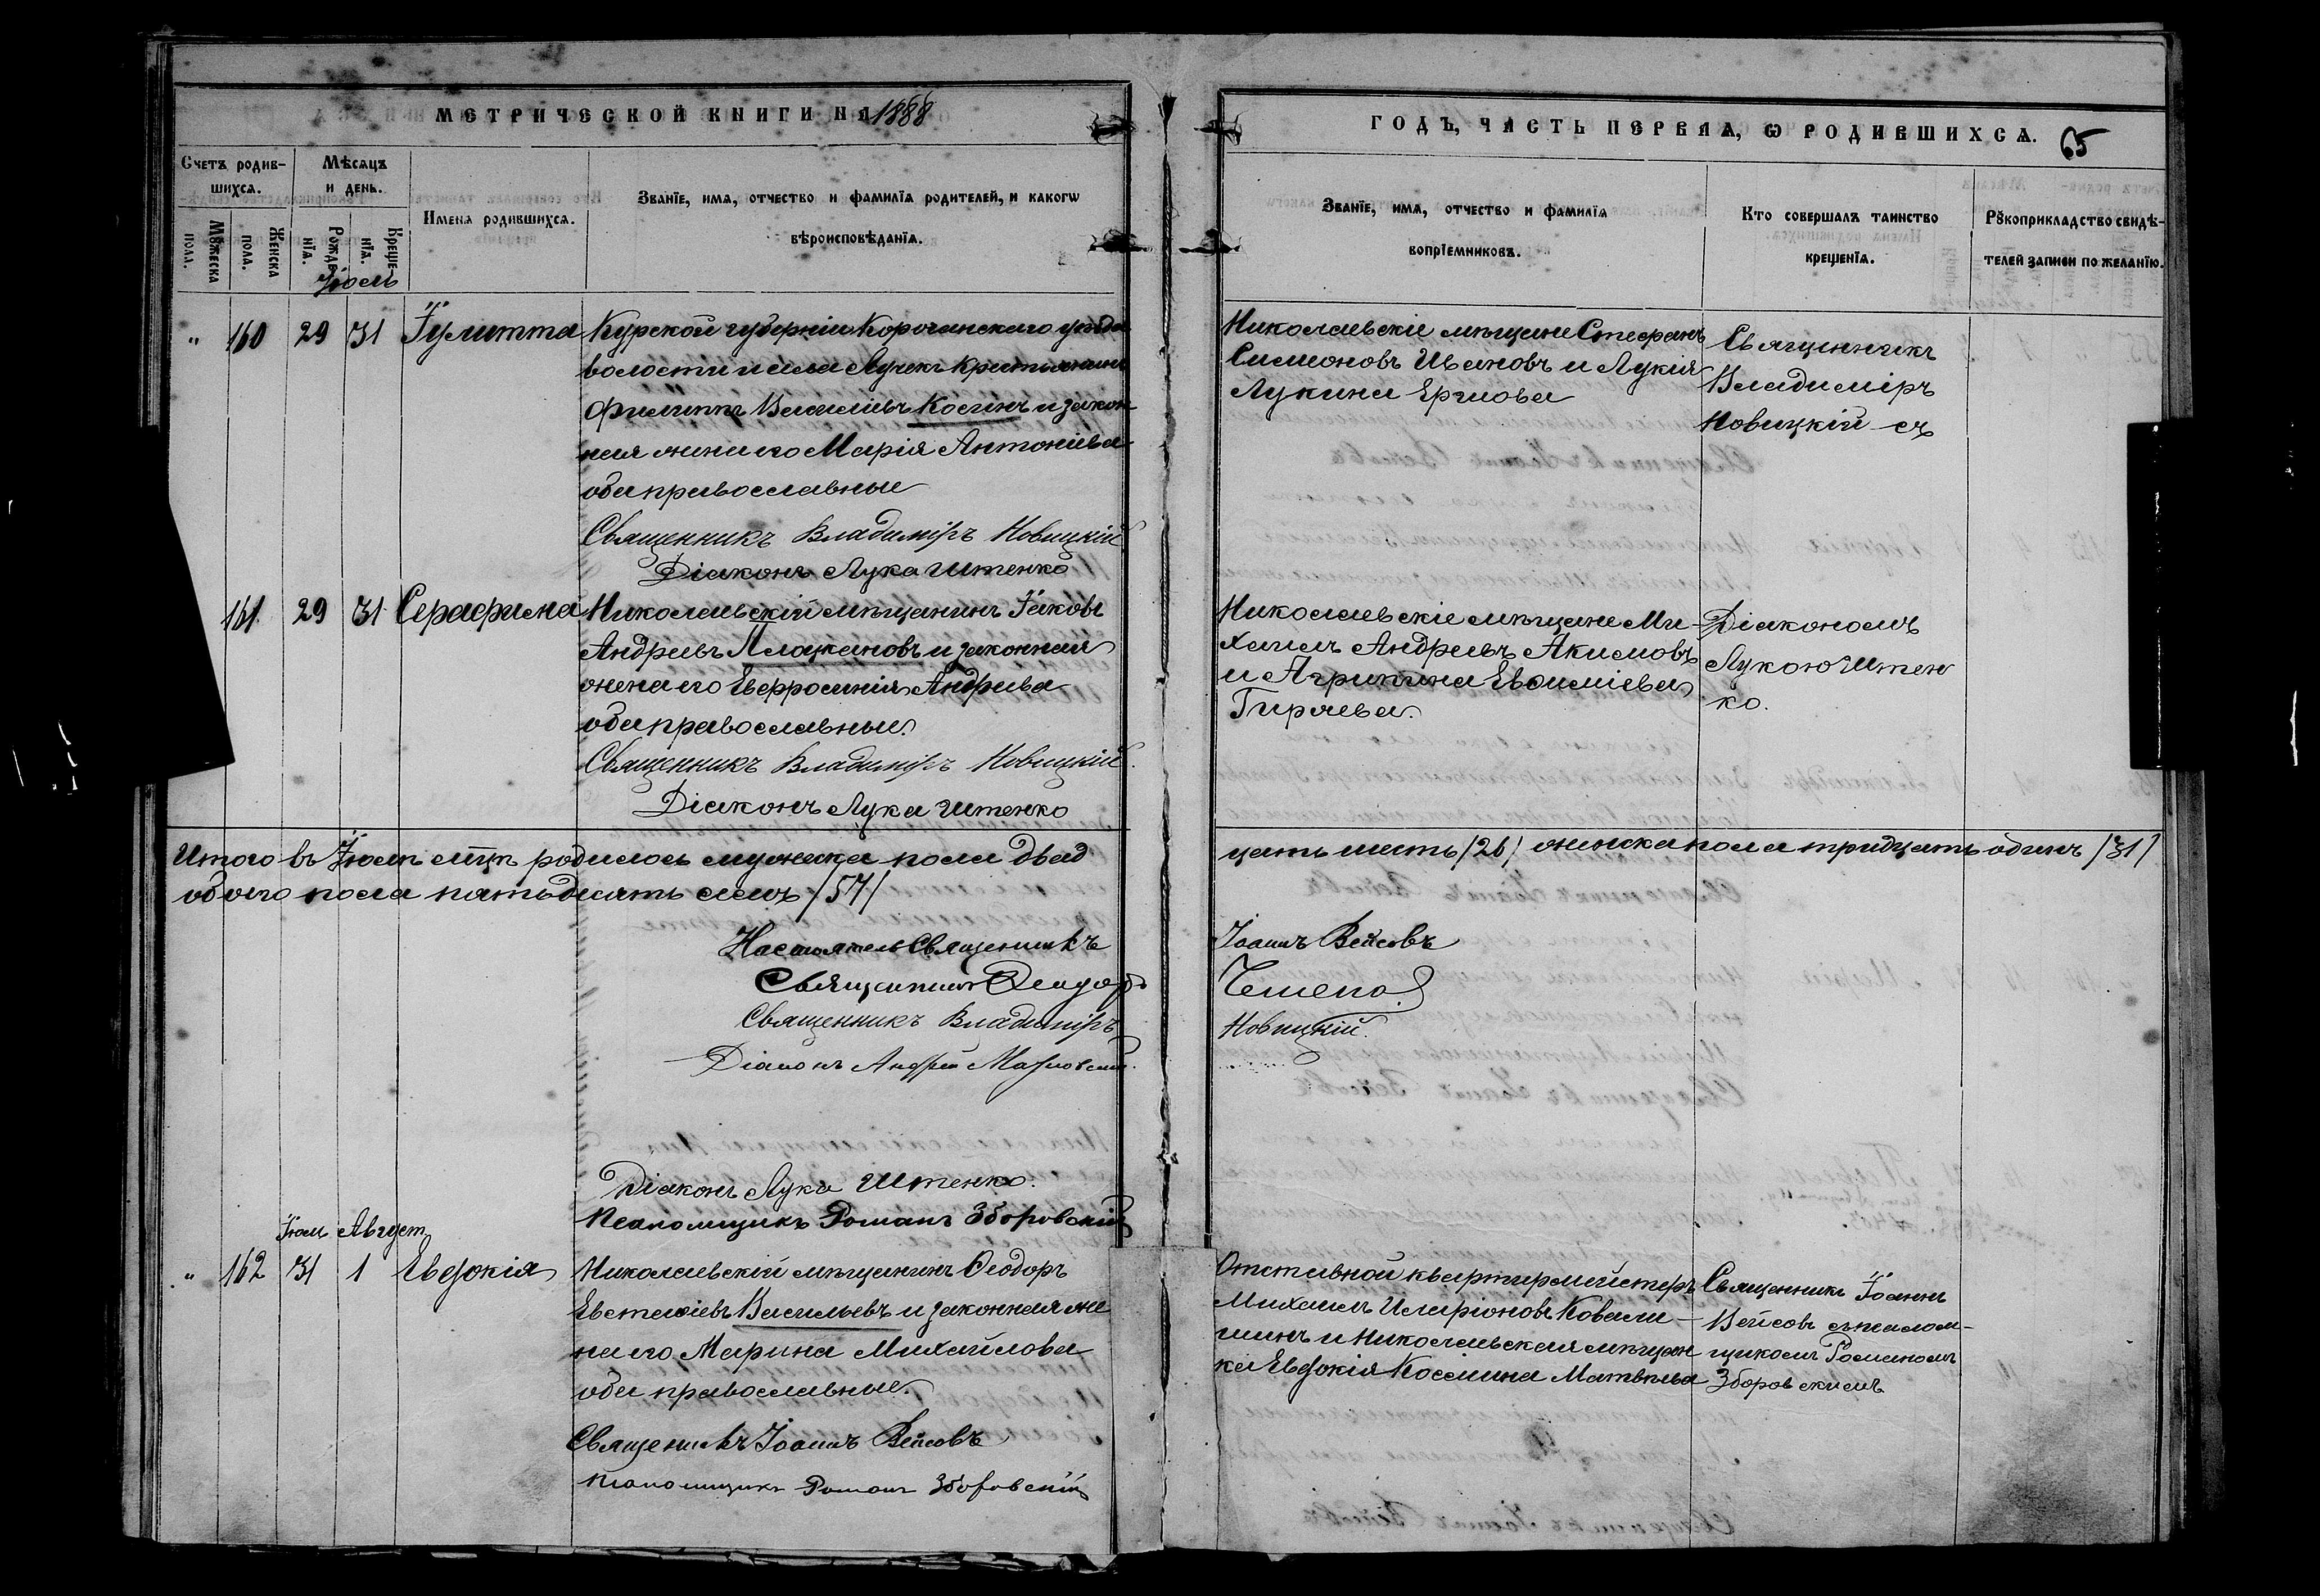 МЕТРИЧЕСКОЙ КНИГИ НА 1888
ГОДЪ, ЧАСТЬ ПЕРВАЯ, Ѡ РОДИВШИХСѦ.
65
Счетъ родив-
шихсѧ.
Мѣсѧцъ
и день.
Мꙋжеска
пола.
Женска
пола.
Рожде-
нїѧ.
Креще-
нїѧ.
Имена родившихсѧ.
Званїе, имѧ, отчество и фамилїѧ родителей, и какогѡ
вѣроисповѣданїѧ.
Званїе, имѧ, отчество и фамилїѧ
вопрїемниковъ.
Кто совершалъ таинство
крещенїѧ.
Рꙋкоприкладство свидѣ-
телей записи по желанїю.
Іюль
" 160 29 31 Іулитта
Курской губерніи Корочанскаго уѣзда
волости и села крестьянинъ
Филиппъ Власіевъ Косинъ и закон
ная жена его Марія Антоніева
оба православные
Священникъ Владиміръ Новицкій
Діаконъ Лука Штенко
Николаевскіе мѣщане Стефанъ
Симеоновъ Ивановъ и Лукія
Лукина
Священникъ
Владиміръ
Новицкій съ
161 29 31 Серафима
Николаевскій мѣщанинъ Іаковъ
Андреевъ Плацкановъ и законная
жена его Евфросинія Андреева
оба православные.
Священникъ Владиміръ Новицкій.
Діаконъ Лука Штенко
Николаевскіе мѣщане Ми-
хаилъ Андреевъ Акимовъ
и Агрипина Евѳиміева
Гиряева.
Діакономъ
Лукою Штен
ко.
Итого въ Іюлѣ мцѣ родилось мужеска пола двад
цать шесть /26/ женска пола тридцать одинъ /31/
обоего пола пятьдесятъ семь /57/
Настоятель Священникъ Іоаннъ Вейсовъ
Священникъ Ѳеодоръ
Священникъ Владиміръ Новицкій.
Діаконъ Андрей
Діаконъ Лука Штенко.
Псаломщикъ Романъ Зборовскій
Іюль Август
" 162 31 1 Евдокія
Николаевскій мѣщанинъ Ѳеодоръ
Евстаѳіевъ Васильевъ и законная же
на его Марина Михайлова
оба православные.
Священникъ Іоаннъ Вейсовъ
Псаломщикъ Романъ Зборовскій
Отставной квартирмейстеръ
Михаилъ Иларіоновъ Ковали-
шинъ и Николаевская мѣщан
ка Евдокія Косьмина Матвѣева
Священникъ Іоаннъ
Вейсовъ съ псалом-
щикомъ Романомъ
Зборовскимъ